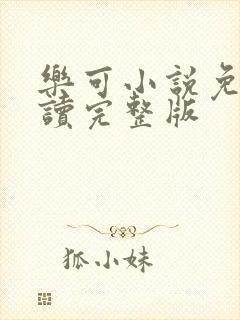 樂可小說免
讀完整版
狐小妹